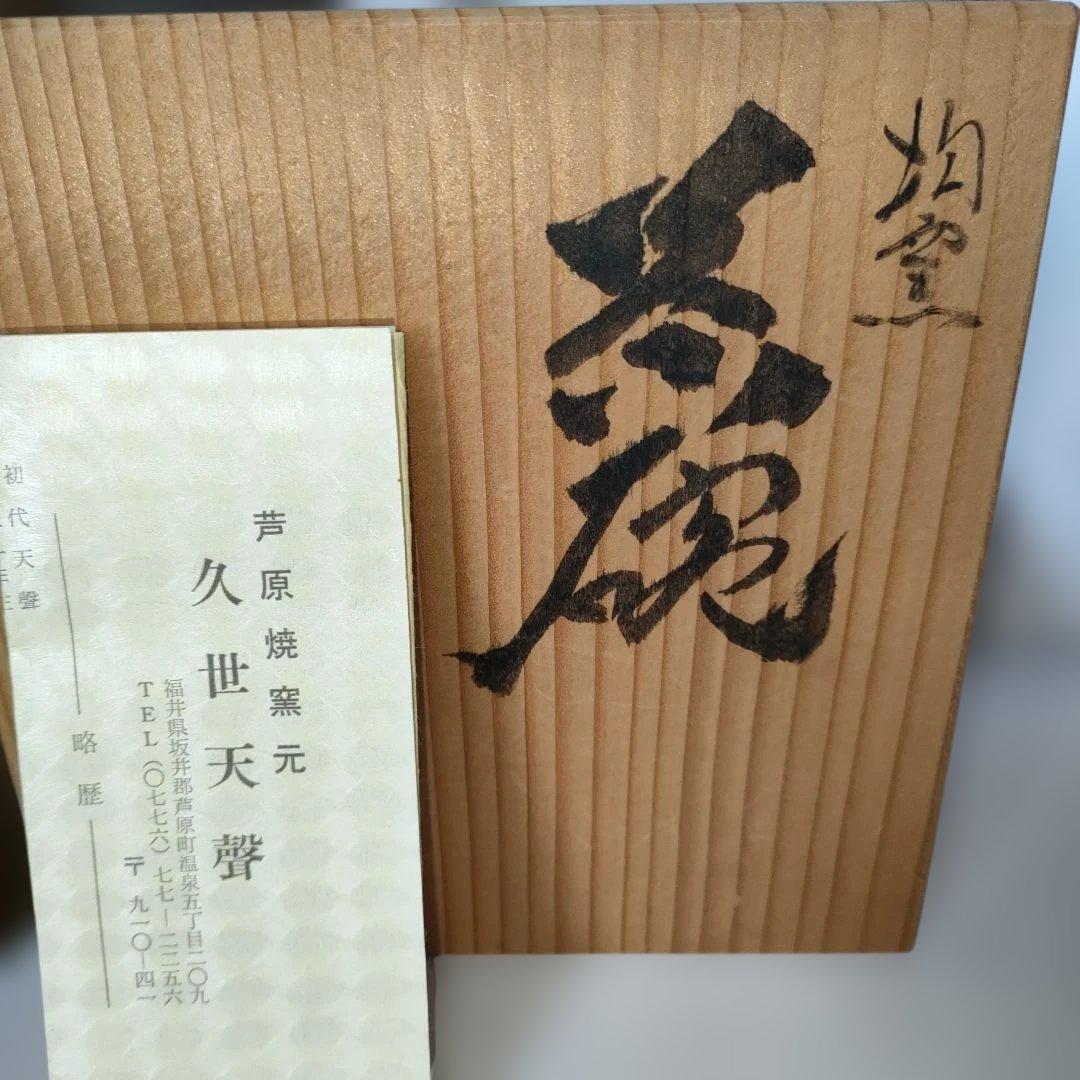 均窯
茶碗
芦原焼窯元
久世天聲
福井県坂井郡芦原町温泉五丁目二〇九
TEL(〇七七六)七七―二二五六
〒九一〇―四一
略歴
初代天聲